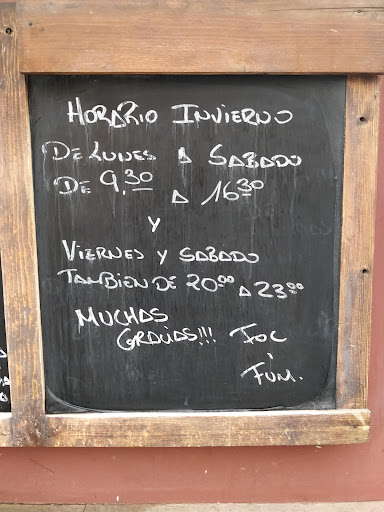 HORARIO INVIERNO
DE LUNES A SABADO
DE 9,30 A 16 30
Y
VIERNES Y SABADO
TAMBIEN DE 20 00 A 23 00
MUCHAS
GRACIAS!!! FOC
i
FUM.